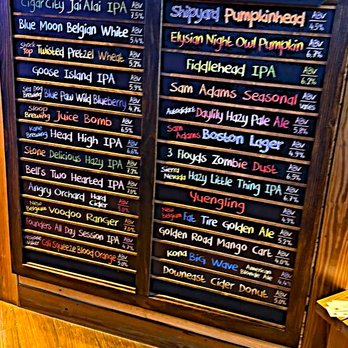 Cigar City Jai Alai IPA ABV 7.5%
Blue Moon Belgian White ABV 5.4%
Shock Top Twisted Pretzel Wheat ABV 5.2%
Goose Island IPA ABV 5.9%
Sea Dog Brewing Blue Paw Wild Blueberry ABV 4.7%
Sloop Brewing Juice Bomb ABV 6.5%
Kane Brewing Head High IPA ABV
Stone Delicious Hazy IPA ABV
Bell's Two Hearted IPA ABV 7.0%
Angry Orchard Hard Cider ABV 5.0%
New Belgium Voodoo Ranger ABV 7.0%
Founders All Day Session IPA ABV 4.7%
Cali Squeeze Blood Orange ABV
Shipyard Pumpkinhead ABV
Elysian Night Owl Pumpkin ABV
Fiddlehead IPA ABV
Sam Adams Seasonal ABV Varies
Daylily Hazy Pale Ale ABV 5.0%
Sam Adams Boston Lager ABV
3 Floyds Zombie Dust ABV
Sierra Nevada Hazy Little Thing IPA ABV
Yuengling ABV
New Belgium Fat Tire Golden Ale ABV 5.2%
Golden Road Mango Cart ABV
Kona Big Wave American Blonde Ale ABV
Downeast Cider Donut ABV